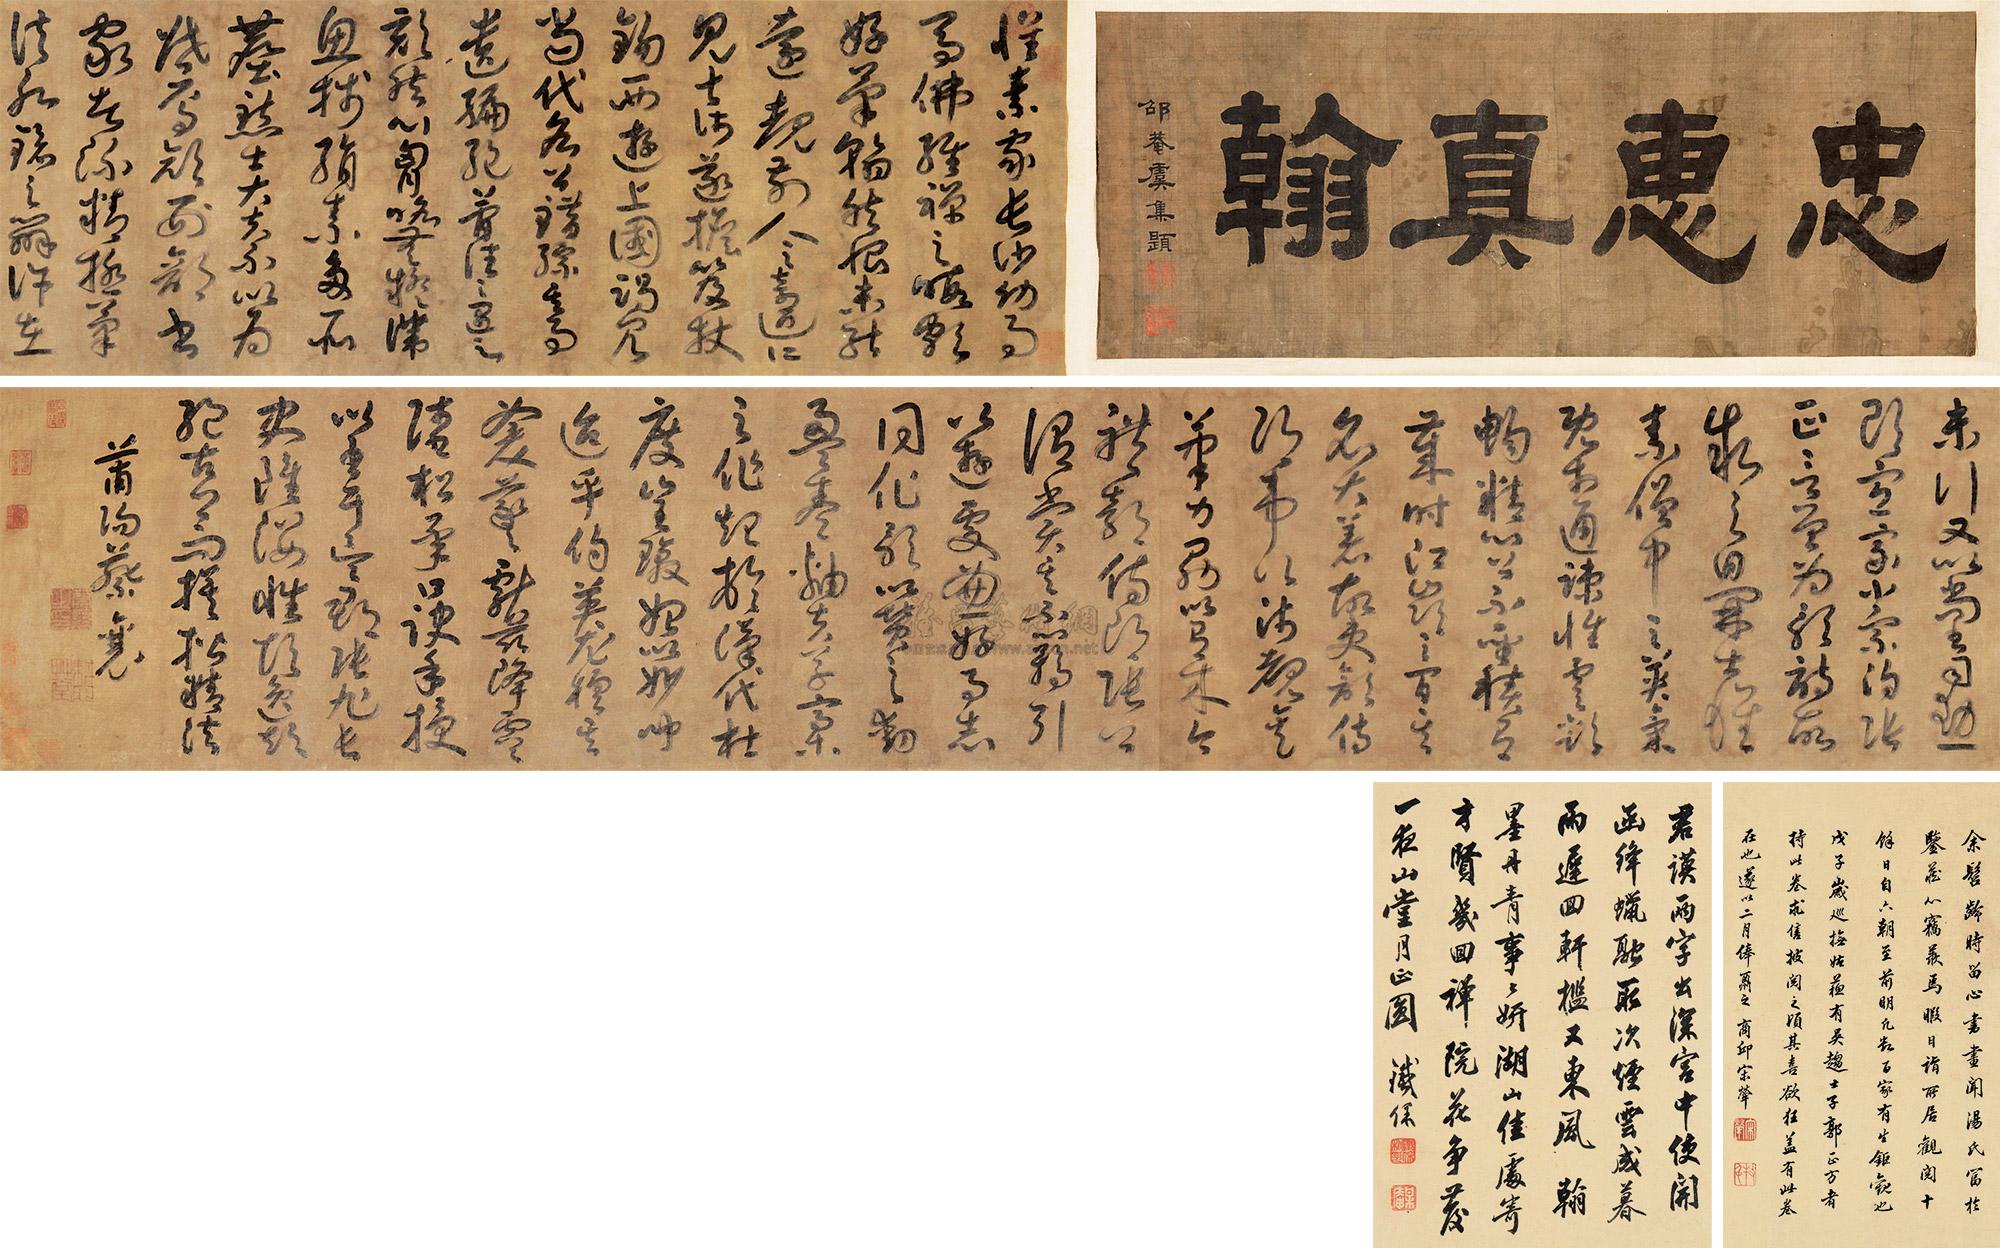 忠惠真翰
邵菴虞集題
懷素家長沙幼而
事佛經禪之暇頗
好筆翰然恨未能
遠覩前人之奇迹所
見甚淺遂擔笈杖
錫西遊上國謁見
當代名公錯綜其事
遺編絕簡往往遇之
豁然心胸略無疑滯
魚牋絹素多所
塵點士大夫不以為
怪焉顏刑部書
家者流精極筆
法水鏡之辨許在
末行又以尚書司勳
郎盧象小宗伯張
正言曾為歌詩故
叙之曰開士懷
素僧中之英氣
概通疎性靈豁
暢精心草聖積有
歲時江嶺之間其
名大著故吏部侍
郎韋公陟覩其
筆力勗以有成今
禮部侍郎張公
謂賞其不羈引
以遊處兼好事者
同作歌以贊之動
盈卷軸夫草稾
之作起於漢代杜
度崔瑗始以妙聞
迨乎伯英尤擅其
美羲獻茲降虞
陸相承口訣手授
以至於吳郡張旭長
史雖姿性顛逸超
絕古今而模楷精法
莆陽蔡襄
余髫齡時留心書畫聞湯氏富於
鑒藏心竊慕焉暇日詣所居觀閱十
餘日自六朝至前明凡數百家有生鉅觀也
戊子歲巡撫姑蘇有吳趨士子郭正方者
持此卷求售披閱之頃其喜欲狂蓋有此卷
在也遂以二月俸易之 商邱宋犖
君謨兩字出深宮中使開
函絳蠟融取次煙雲成暮
雨遲回軒檻又東風 翰
墨丹青事〻妍湖山佳處寄
才賢幾回禪院花爭發
一夜山堂月正圓 鐵保